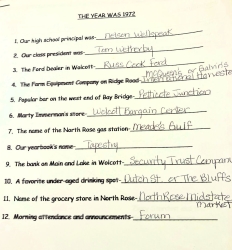 THE YEAR WAS 1972
1. Our high school principal was- Nelson Wellspeak
2. Our class president was- Tom Wetherby
3. The Ford Dealer in Wolcott- Russ Cook Ford
McQueens or Galvin's
4. The Farm Equipment Company on Ridge Road- International Harvester
5. Popular bar on the west end of Bay Bridge- Petticote Junction
6. Marty Immerman's store- Wolcott Bargain Center
7. The name of the North Rose gas station- Meade's Gulf
8. Our yearbook's name- Tapestry
9. The bank on Main and Lake in Wolcott- Security Trust Company
10. A favorite under-aged drinking spot- Dutch St. or The Bluffs
11. Name of the grocery store in North Rose- North Rose Midstate
market
12. Morning attendance and announcements- Forum